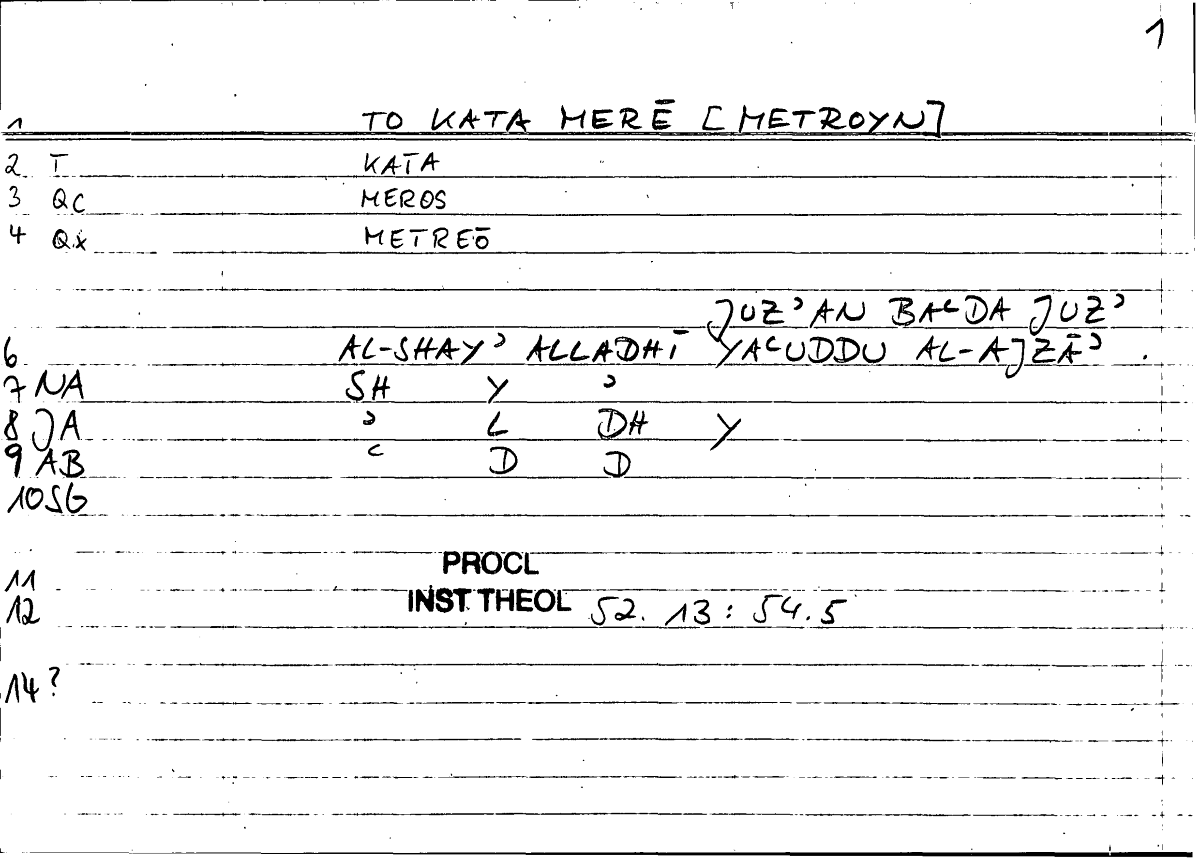 1
1 TO KATA MERĒ [METROYN]
2 T KATA
3 QC MEROS
4 QX METREŌ
JUZʾAN BAʿDA JUZʾ
6 AL-SHAYʾ ALLADHĪ YAʿUDDU AL-AJZĀʾ .
7 NA SH Y ʾ
8 JA ʾ L DH Y
9 AB ʿ D D
10 SG
11 PROCL
12 INST THEOL 52. 13: 54.5
14?